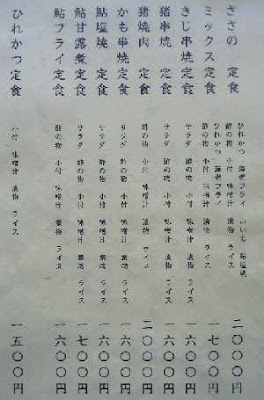 ささの 定食
ひれかつ 海老フライ 鮎塩焼
酢の物 小付 味噌汁 漬物 ライス
二〇〇〇円
ミックス定食
ひれかつ 海老フライ
酢の物 小付 味噌汁 漬物 ライス
一七〇〇円
きじ串焼定食
サラダ 酢の物 小付 味噌汁 漬物 ライス
一六〇〇円
猪串焼 定食
サラダ 酢の物 小付 味噌汁 漬物 ライス
一六〇〇円
猪焼肉 定食
酢の物 小付 味噌汁 漬物 ライス
二〇〇〇円
かも串焼定食
サラダ 酢の物 小付 味噌汁 漬物 ライス
一六〇〇円
鮎塩焼 定食
サラダ 酢の物 小付 味噌汁 漬物 ライス
一六〇〇円
鮎甘露煮定食
サラダ 酢の物 小付 味噌汁 漬物 ライス
一七〇〇円
鮎フライ定食
酢の物 小付 味噌汁 漬物 ライス
一六〇〇円
ひれかつ定食
小付 味噌汁 漬物 ライス
一五〇〇円